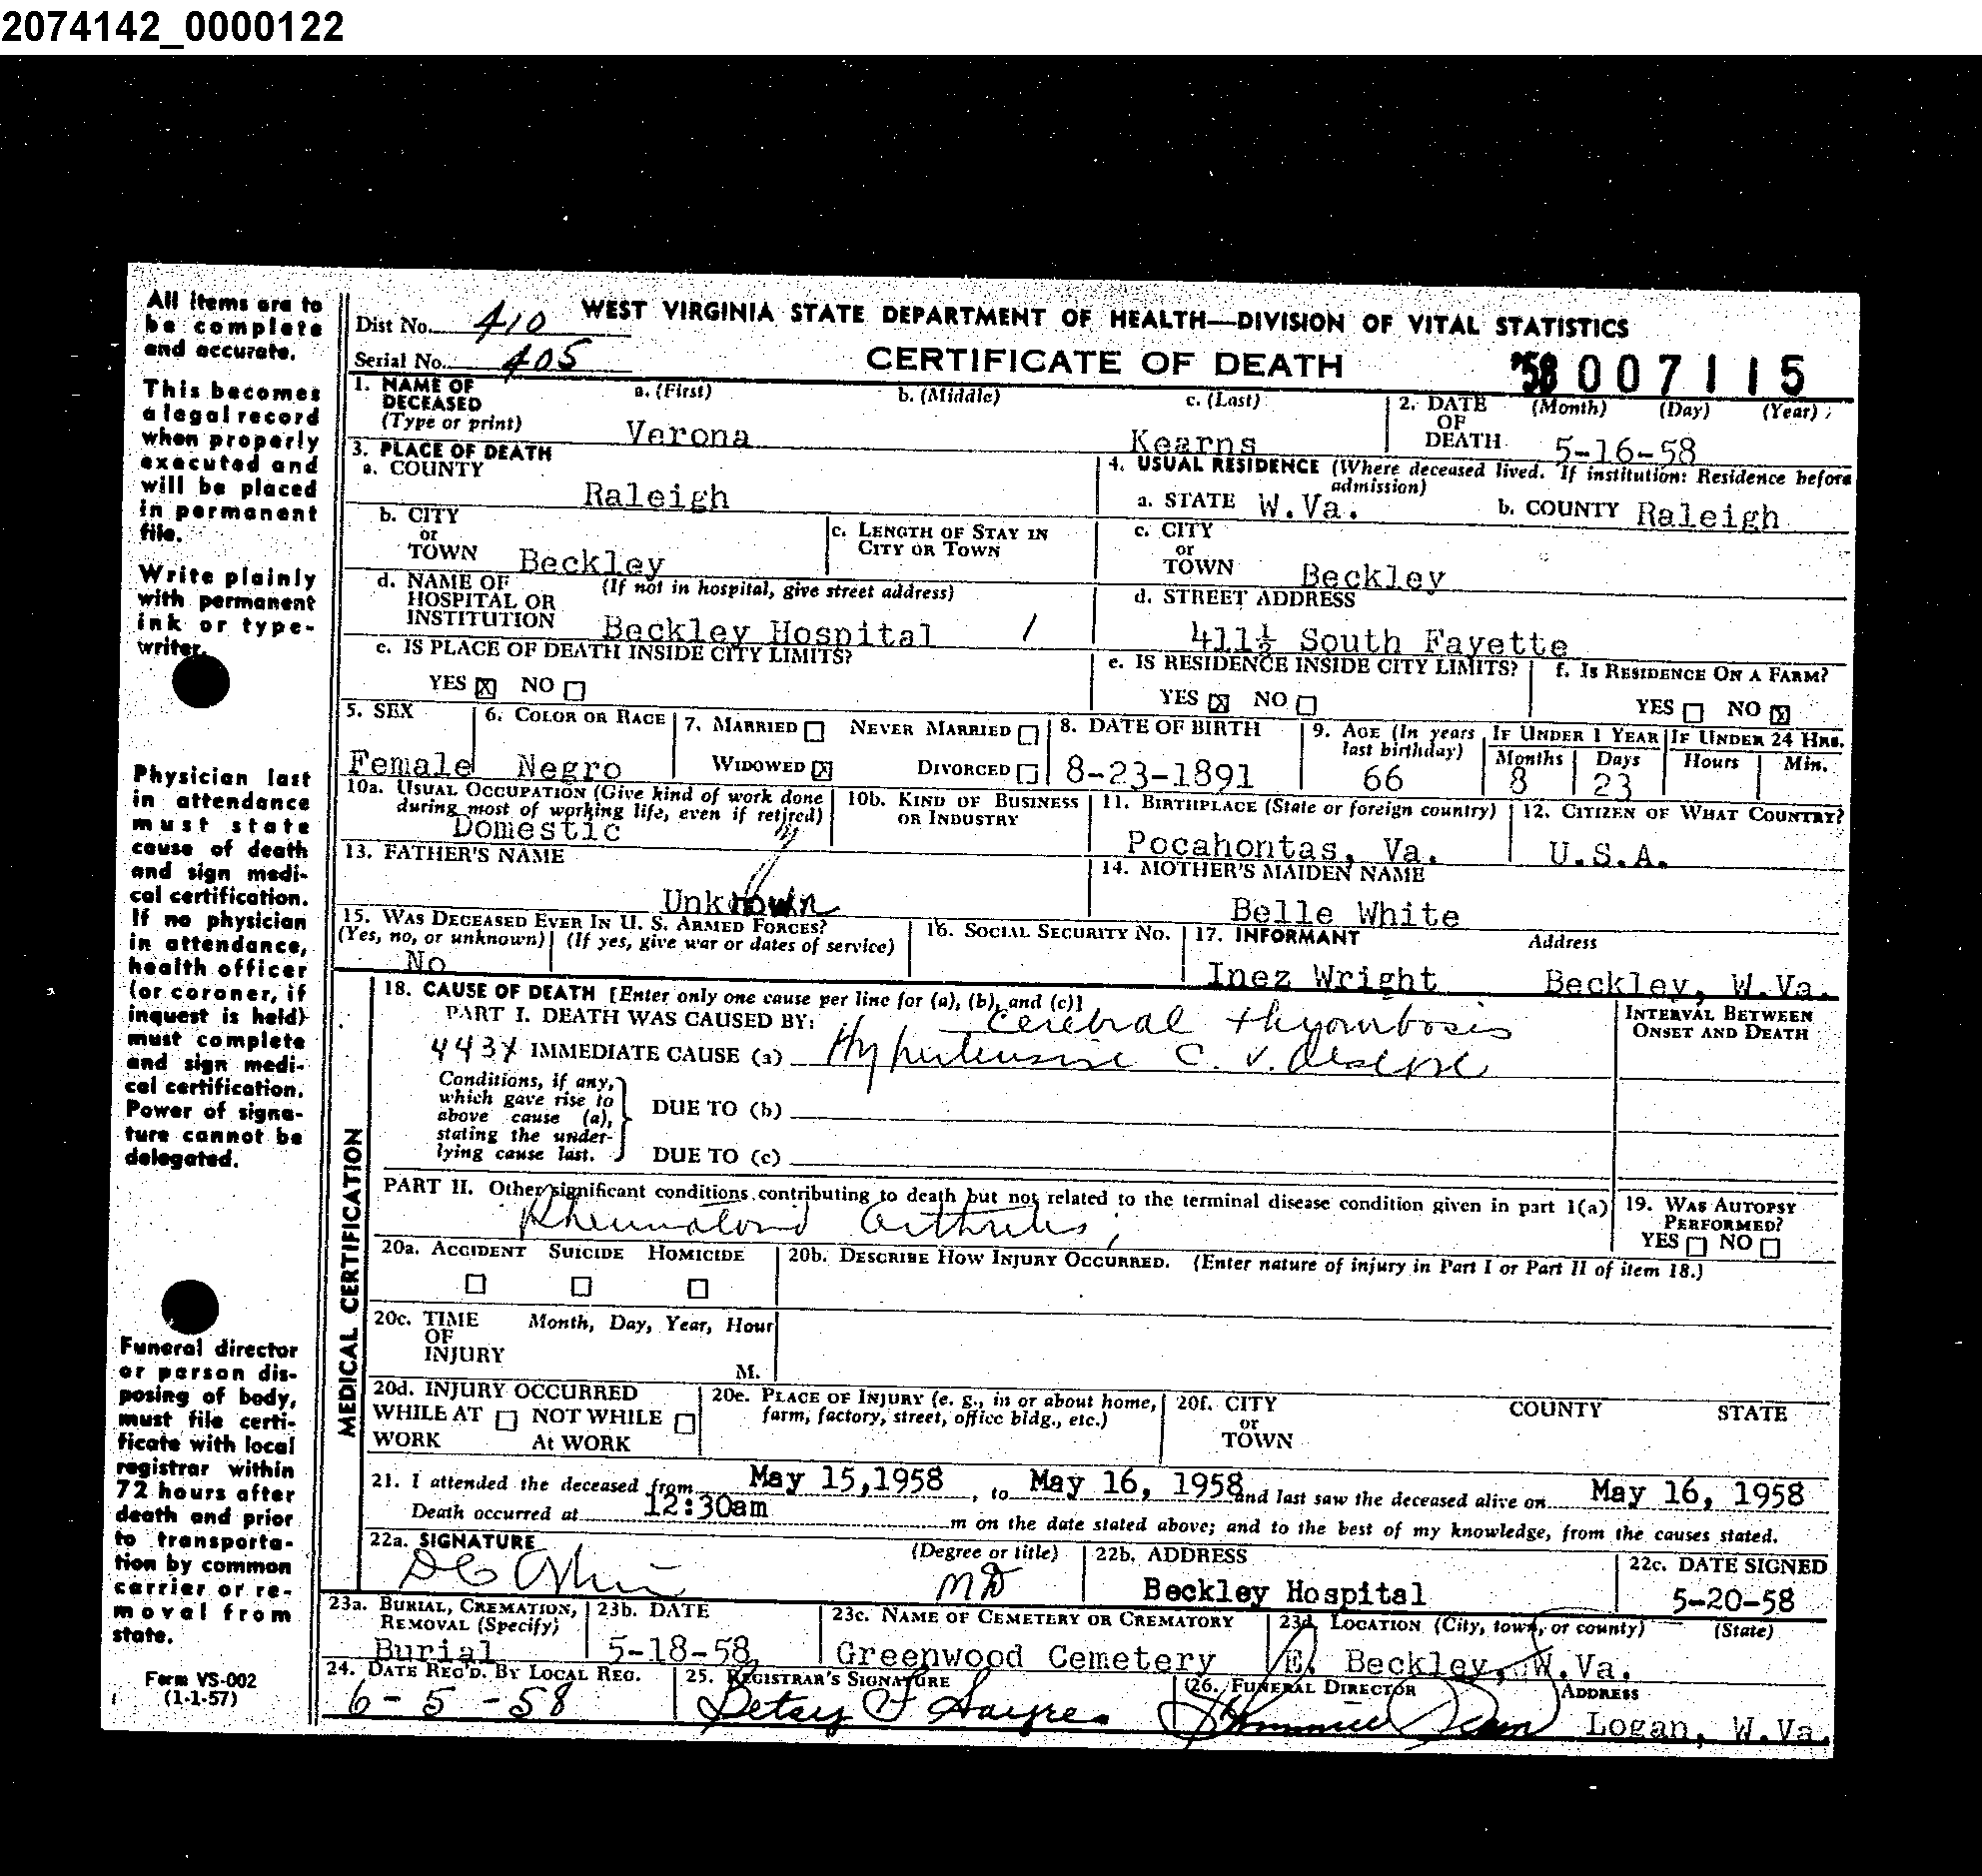 2074142_0000122
All items are to
be complete
and accurate.
This becomes
a legal record
when properly
executed and
will be placed
in permanent
file.
Write plainly
with permanent
ink or type-
writer.
Physician last
in attendance
must state
cause of death
and sign medi-
cal certification.
If no physician
in attendance,
health officer
(or coroner, if
inquest is held)
must complete
and sign medi-
cal certification.
Power of signa-
ture cannot be
delegated.
Funeral director
or person dis-
posing of body,
must file certi-
ficate with local
registrar within
72 hours after
death and prior
to transporta-
tion by common
carrier or re-
moval from
state.
Form VS-002
(1-1-57)
Dist No. 410 WEST VIRGINIA STATE DEPARTMENT OF HEALTH—DIVISION OF VITAL STATISTICS
Serial No. 405 CERTIFICATE OF DEATH 58 007115
1. NAME OF DECEASED (Type or print) a. (First) b. (Middle) c. (Last)
Verona Kearns
2. DATE OF DEATH (Month) (Day) (Year)
5-16-58
3. PLACE OF DEATH
a. COUNTY
Raleigh
4. USUAL RESIDENCE (Where deceased lived. If institution: Residence before admission)
a. STATE W.Va. b. COUNTY Raleigh
b. CITY or TOWN Beckley
c. LENGTH OF STAY IN CITY OR TOWN
c. CITY or TOWN Beckley
d. NAME OF HOSPITAL OR INSTITUTION (If not in hospital, give street address)
Beckley Hospital /
d. STREET ADDRESS
411½ South Fayette
e. IS PLACE OF DEATH INSIDE CITY LIMITS?
YES X NO
e. IS RESIDENCE INSIDE CITY LIMITS?
YES X NO
f. IS RESIDENCE ON A FARM?
YES NO X
5. SEX
Female
6. COLOR OR RACE
Negro
7. MARRIED NEVER MARRIED
WIDOWED X DIVORCED
8. DATE OF BIRTH
8-23-1891
9. AGE (In years last birthday)
66
IF UNDER 1 YEAR IF UNDER 24 HRS.
Months Days Hours Min.
8 23
10a. USUAL OCCUPATION (Give kind of work done during most of working life, even if retired)
Domestic
10b. KIND OF BUSINESS OR INDUSTRY
11. BIRTHPLACE (State or foreign country)
Pocahontas, Va.
12. CITIZEN OF WHAT COUNTRY?
U.S.A.
13. FATHER'S NAME
Unknown
14. MOTHER'S MAIDEN NAME
Belle White
15. WAS DECEASED EVER IN U. S. ARMED FORCES?
(Yes, no, or unknown) (If yes, give war or dates of service)
No
16. SOCIAL SECURITY NO.
17. INFORMANT Address
Inez Wright Beckley, W.Va.
MEDICAL CERTIFICATION
18. CAUSE OF DEATH [Enter only one cause per line for (a), (b), and (c)]
PART I. DEATH WAS CAUSED BY: Cerebral thrombosis
443X IMMEDIATE CAUSE (a) Hypertensive C. V. disease
INTERVAL BETWEEN ONSET AND DEATH
Conditions, if any, which gave rise to above cause (a), stating the under-lying cause last.
DUE TO (b)
DUE TO (c)
PART II. Other significant conditions contributing to death but not related to the terminal disease condition given in part 1(a)
Rheumatoid Arthritis,
19. WAS AUTOPSY PERFORMED?
YES NO
20a. ACCIDENT SUICIDE HOMICIDE
20b. DESCRIBE HOW INJURY OCCURRED. (Enter nature of injury in Part I or Part II of item 18.)
20c. TIME OF INJURY Month, Day, Year, Hour
M.
20d. INJURY OCCURRED
WHILE AT WORK NOT WHILE At WORK
20e. PLACE OF INJURY (e. g., in or about home, farm, factory, street, office bldg., etc.)
20f. CITY or TOWN COUNTY STATE
21. I attended the deceased from May 15,1958, to May 16, 1958 and last saw the deceased alive on May 16, 1958
Death occurred at 12:30am m on the date stated above; and to the best of my knowledge, from the causes stated.
22a. SIGNATURE (Degree or title)
MD
22b. ADDRESS
Beckley Hospital
22c. DATE SIGNED
5-20-58
23a. BURIAL, CREMATION, REMOVAL (Specify)
Burial
23b. DATE
5-18-58
23c. NAME OF CEMETERY OR CREMATORY
Greenwood Cemetery
23d. LOCATION (City, town, or county) (State)
E. Beckley, W.Va.
24. DATE REC'D. BY LOCAL REG.
6-5-58
25. REGISTRAR'S SIGNATURE
Betsy F Sayre
26. FUNERAL DIRECTOR ADDRESS
Logan, W.Va.